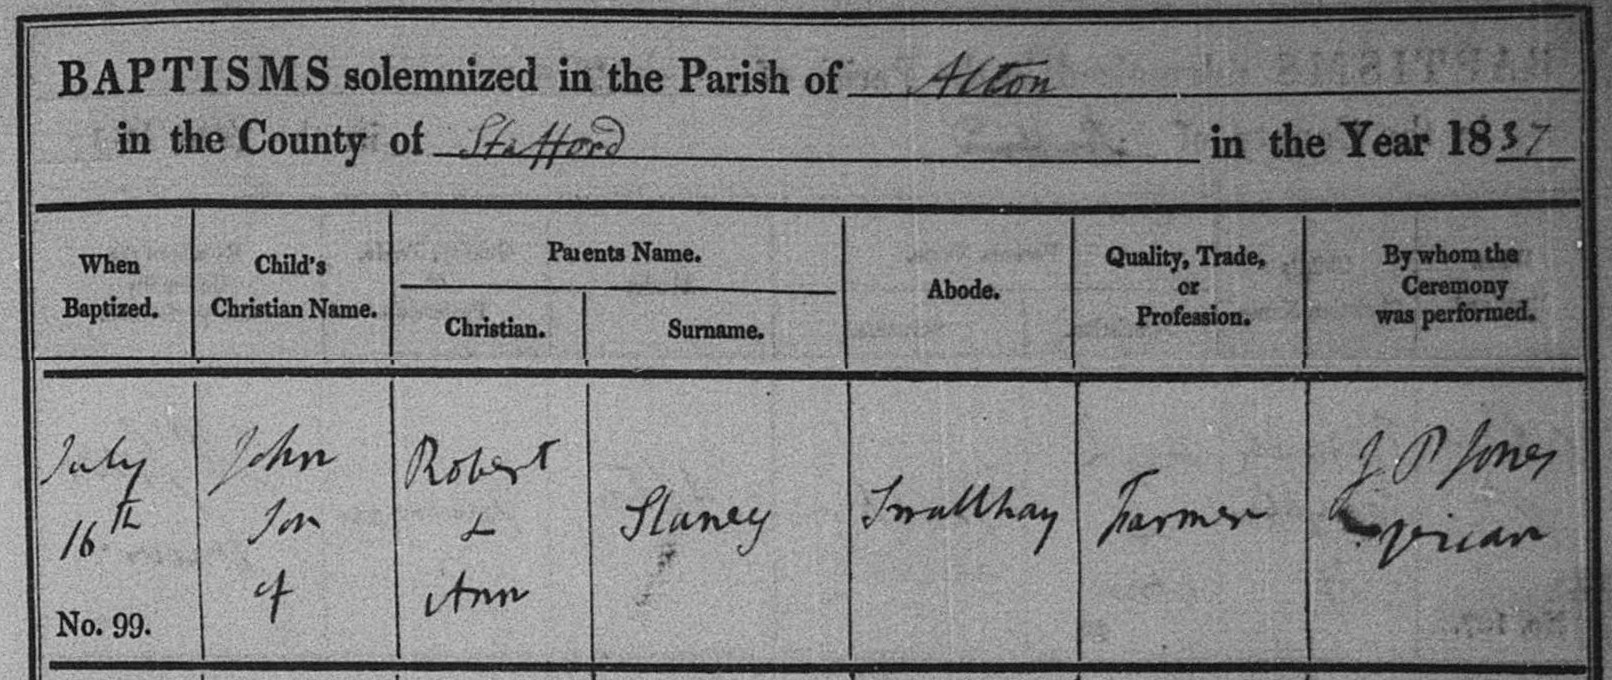 BAPTISMS solemnized in the Parish of Alton
in the County of Stafford in the Year 1837
When Baptized.
Child's Christian Name.
Parents Name.
Christian.
Surname.
Abode.
Quality, Trade, or Profession.
By whom the Ceremony was performed.
July
16th
No. 99.
John
Son
of
Robert
&
Ann
Slaney
Smallhay
Farmer
J P Jones
vicar